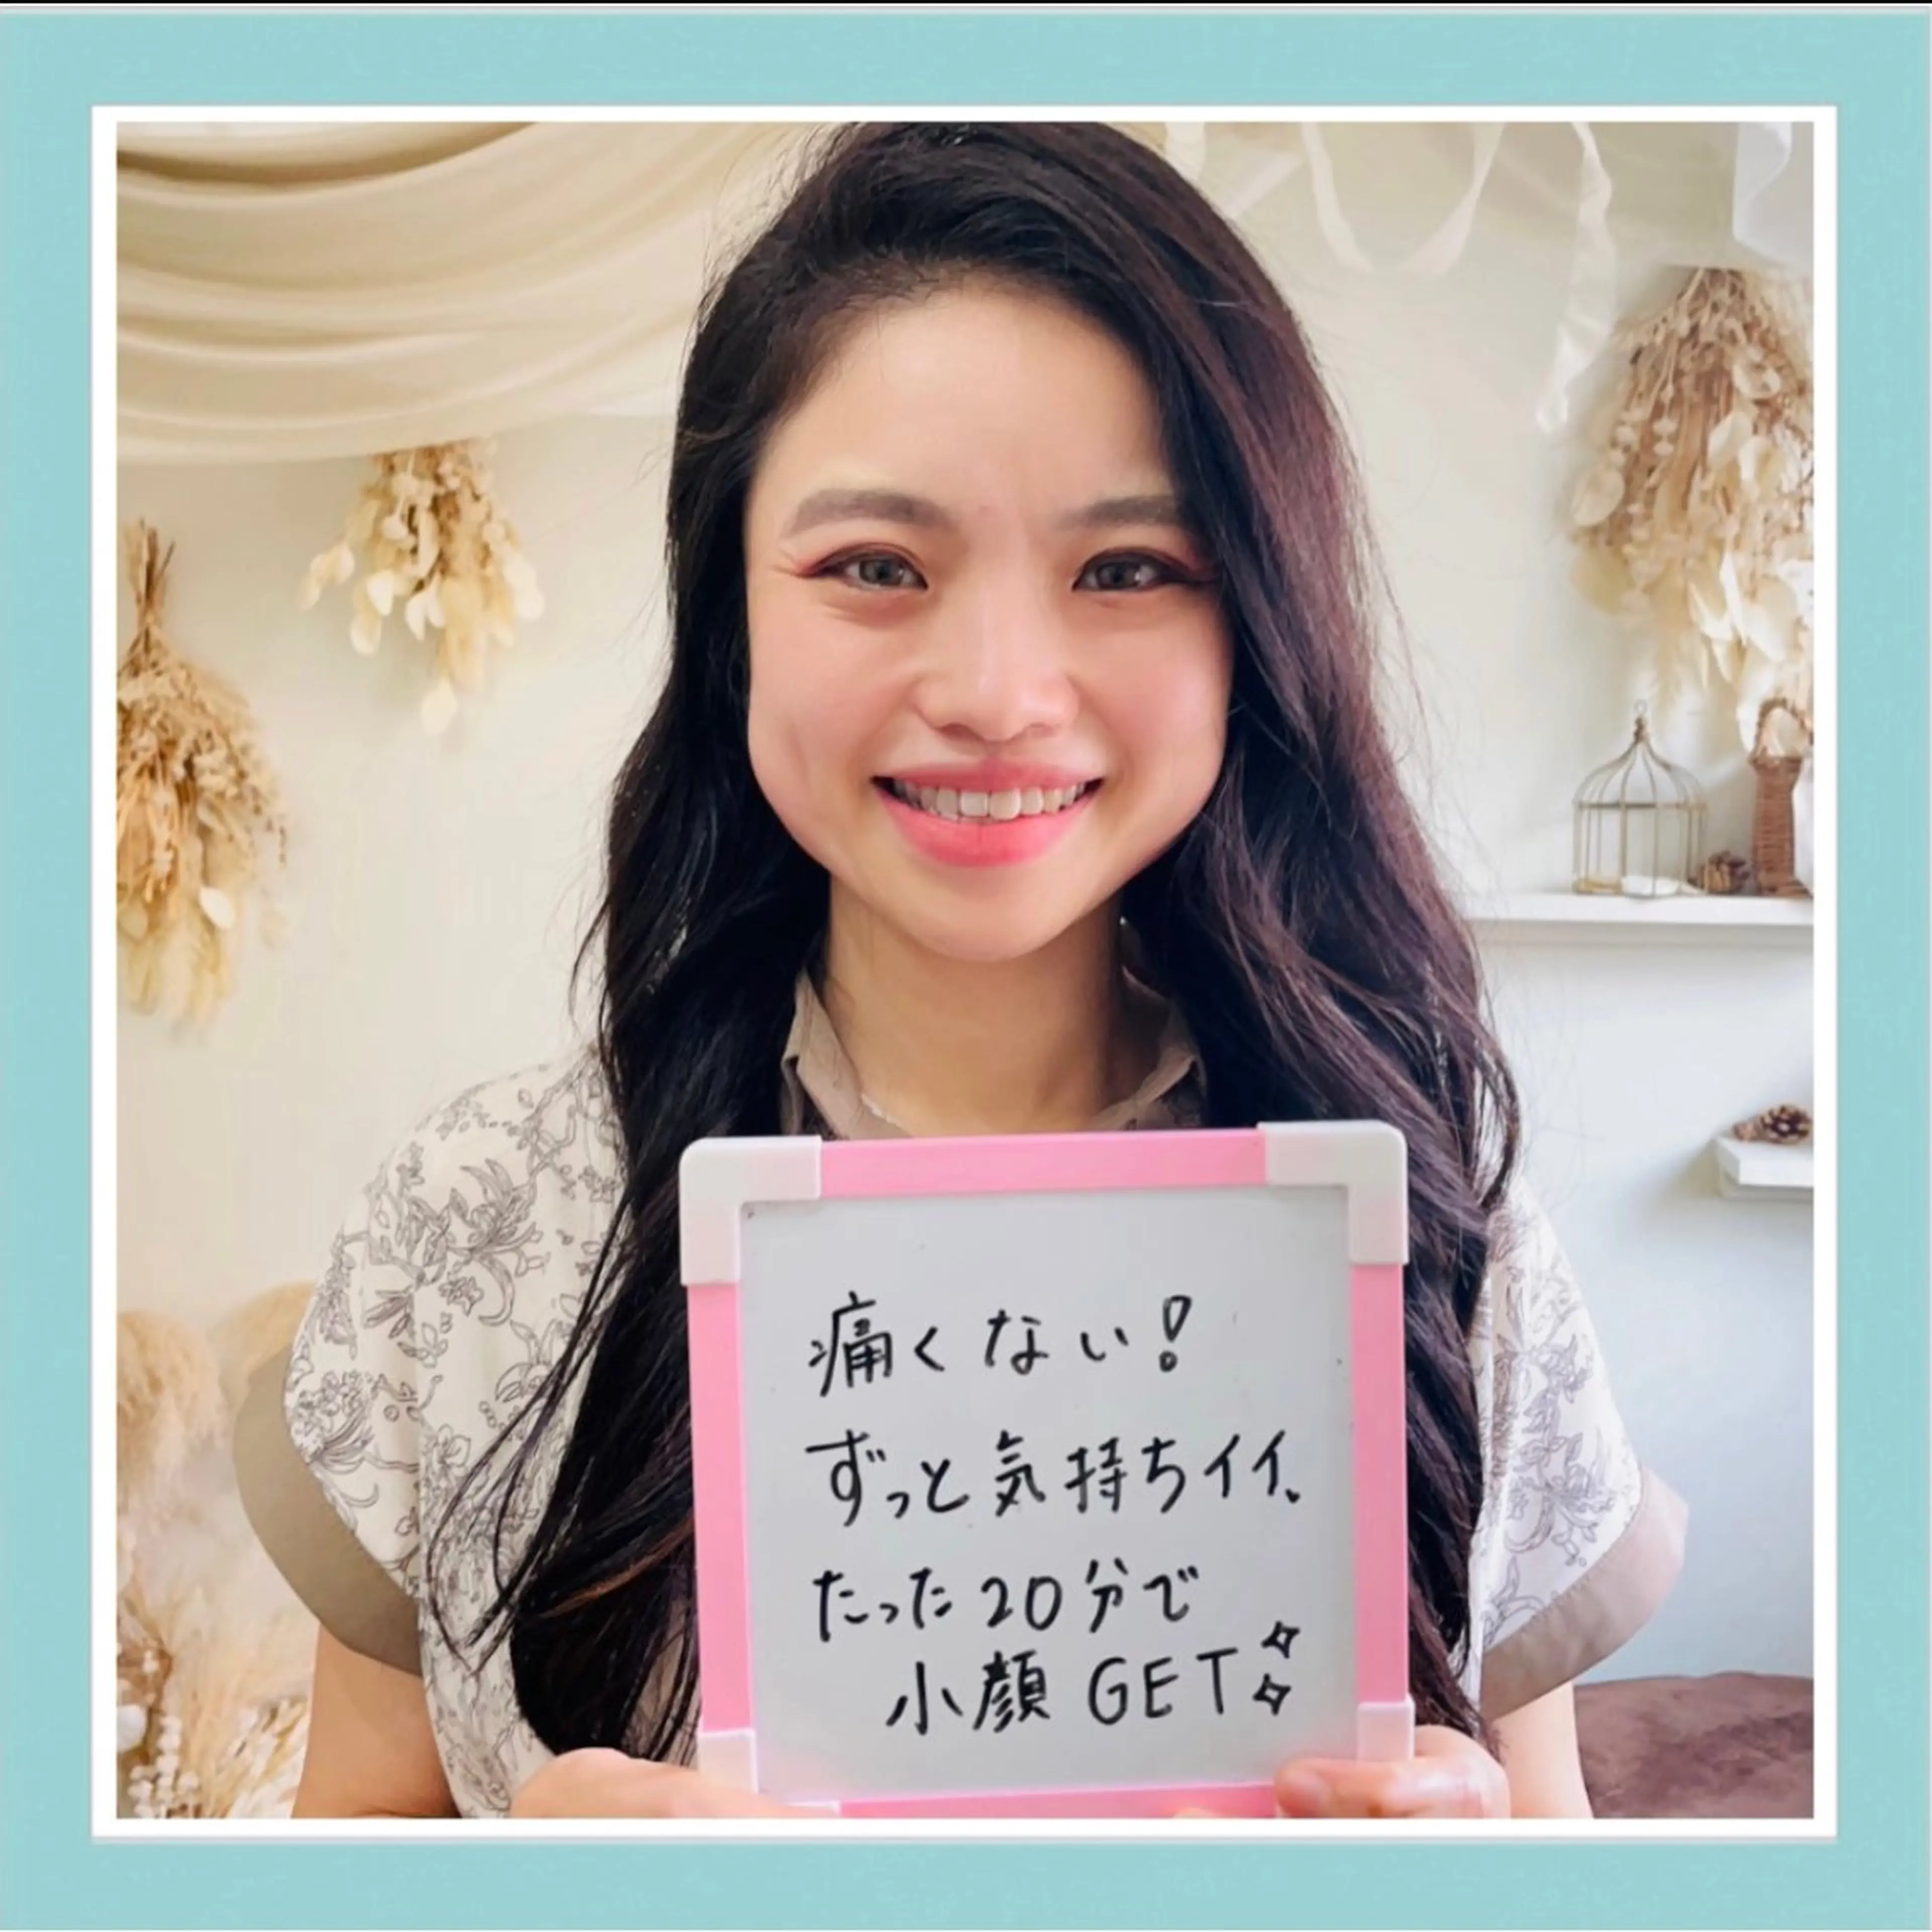 痛くない!
ずっと気持ちイイ。
たった20分で
小顔 GET✧✧